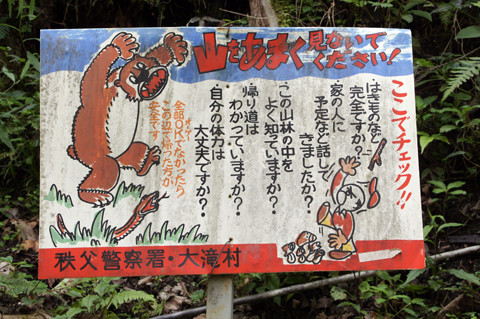 山をあまく見ないで
ください!
ここでチェック!!
・はきものなど
完全ですか?
・家の人に
予定など話して
きましたか?
・この山林の中を
よく知っていますか?
・帰り道は
わかっていますか?
・自分の体力は
大丈夫ですか?
全部OKでなかったら
この辺で帰った方が
安全です
秩父警察署・大滝村